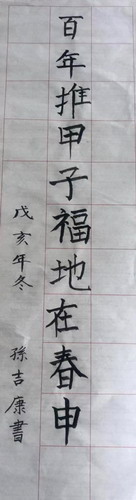 百年推甲子福地在春申
戊亥年冬 孫吉康書